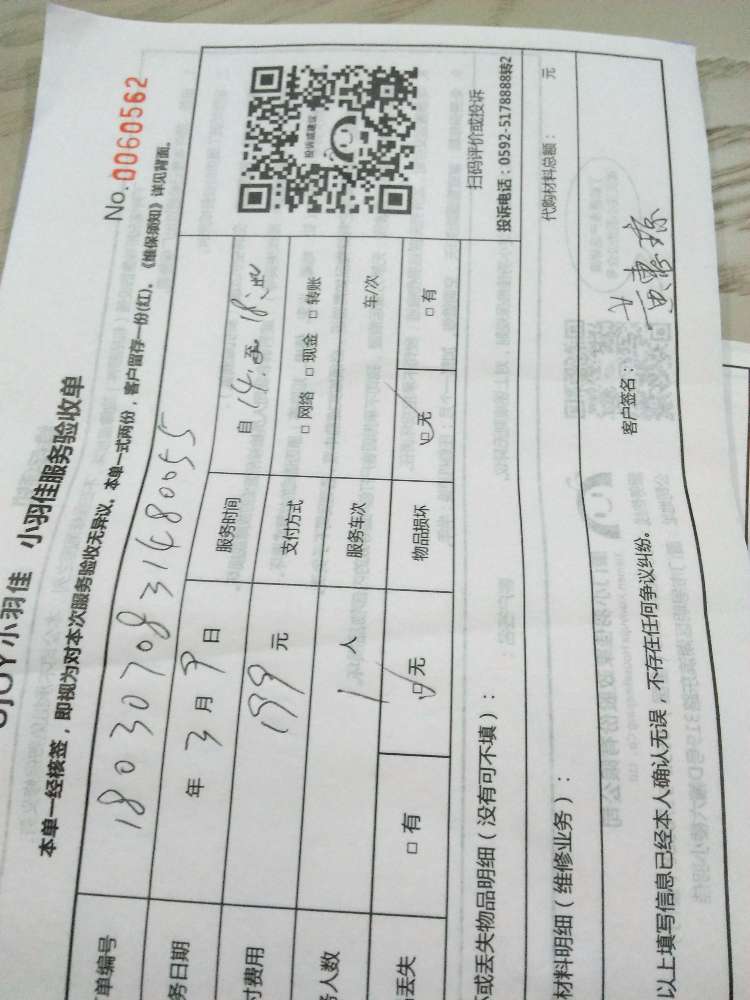 No. 0060562
小羽佳 小羽佳服务验收单
本单一经核签，即视为对本次服务验收无异议。本单一式两份，客户留存一份(红)。《维保须知》详见背面。
单编号 1803070831480055
务日期 年 3 月 9 日 服务时间 自 14: 至 18:
付费用 199 元 支付方式 □ 网络 □ 现金 □ 转账
务人数 1 人 服务车次 车/次
丢失 □ 有 ☑ 无 物品损坏 ☑ 无 □ 有
投诉或建议
扫码评价或投诉
投诉电话：0592-5178888转2
坏或丢失物品明细（没有可不填）：
材料明细（维修业务）： 代购材料总额： 元
以上填写信息已经本人确认无误，不存在任何争议纠纷。 客户签名：